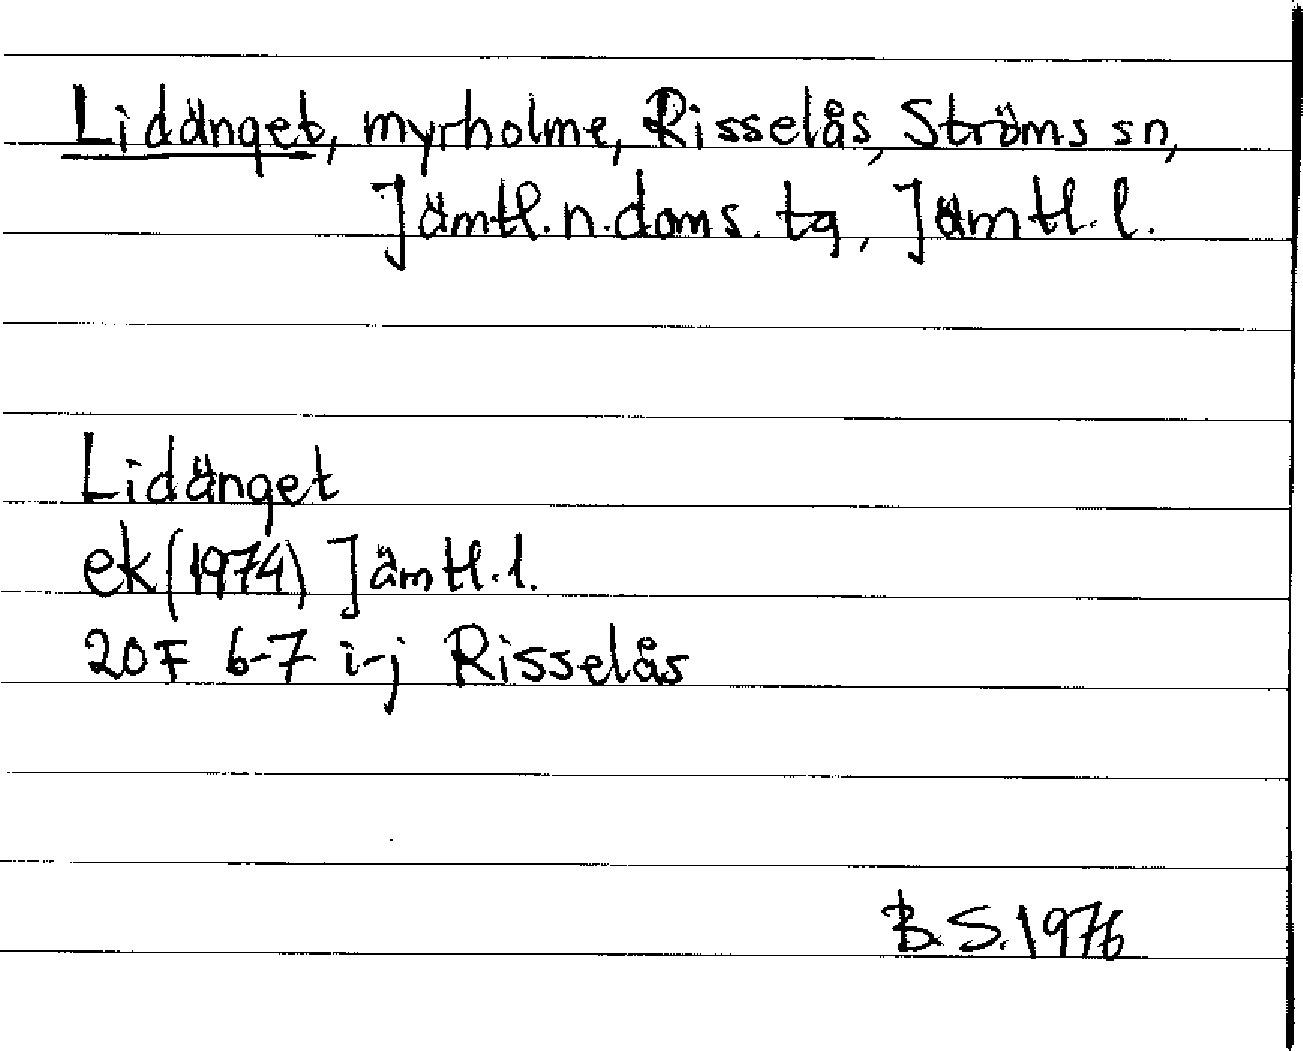 Lidänget, myrholme, Risselås, Ströms sn,
Jämtl. n. doms. tg, Jämtl. l.
Lidänget
ek (1974) Jämtl. l.
20F 6-7 i-j Risselås
B.S. 1976